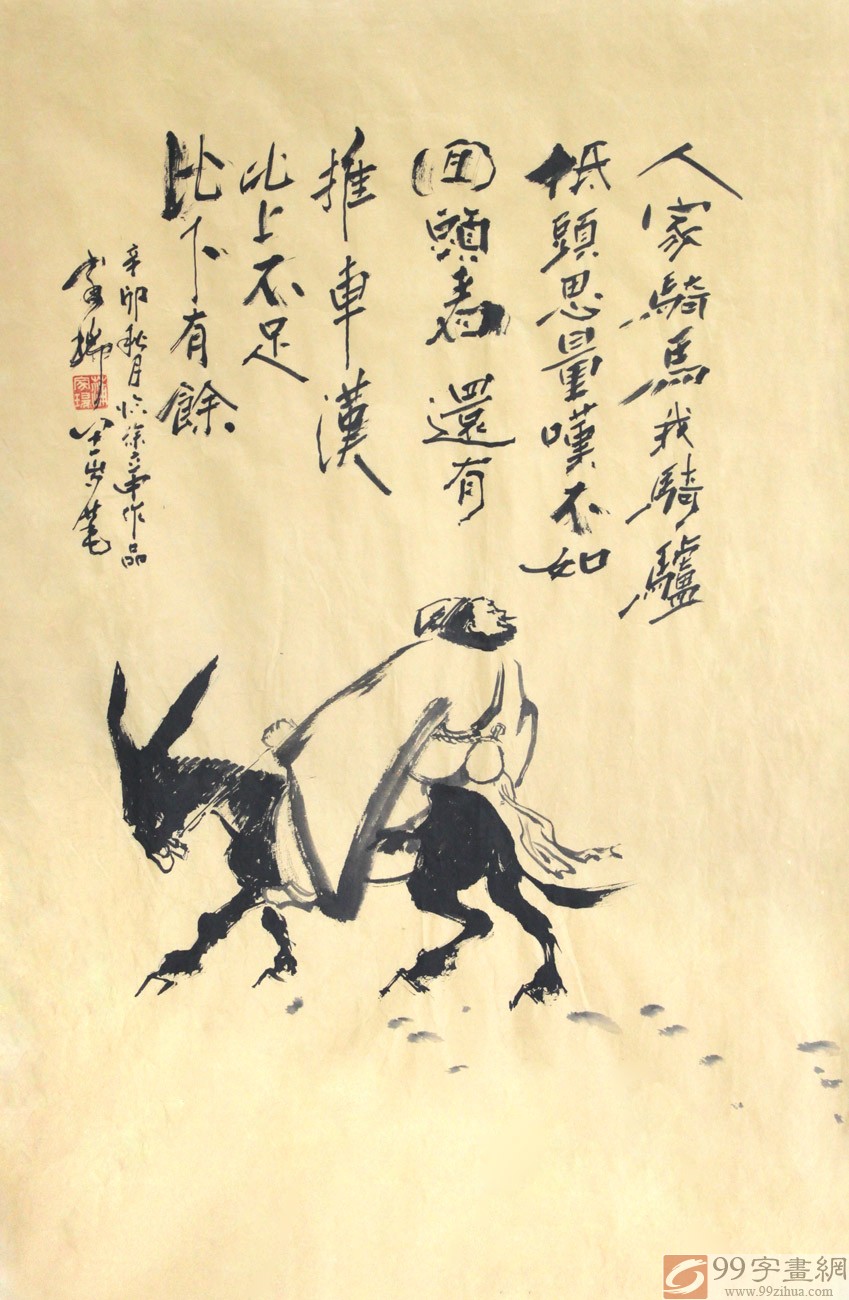 人家騎馬我騎驢
低頭思量嘆不如
回頭看還有
推車漢
比上不足
比下有餘
辛卯秋月临徐作品
99字畫網
www.99zihua.com